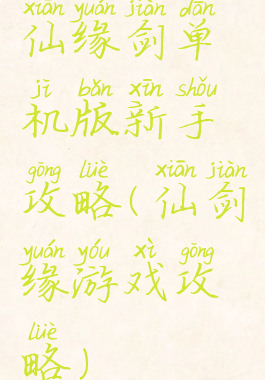 xiān yuán jiàn dān
仙缘剑单
jī bǎn xīn shǒu
机版新手
gōng lüè xiān jiàn
攻略(仙剑
yuán yóu xì gōng
缘游戏攻
lüè
略)